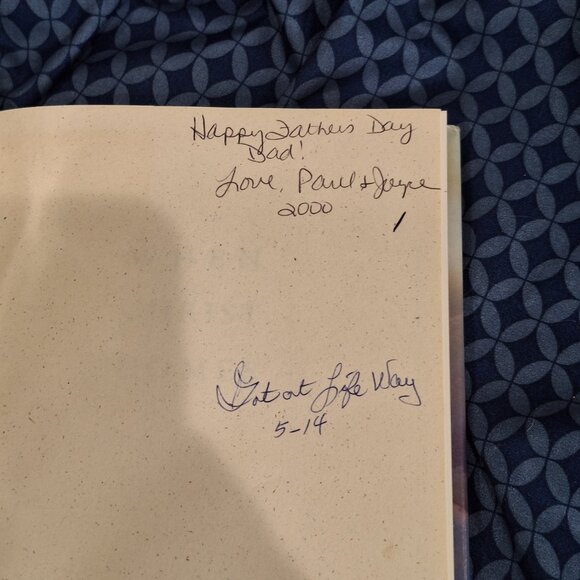 Happy Fathers Day
Dad!
Love, Paul & Joyce
2000
Got at Life Way
5-14